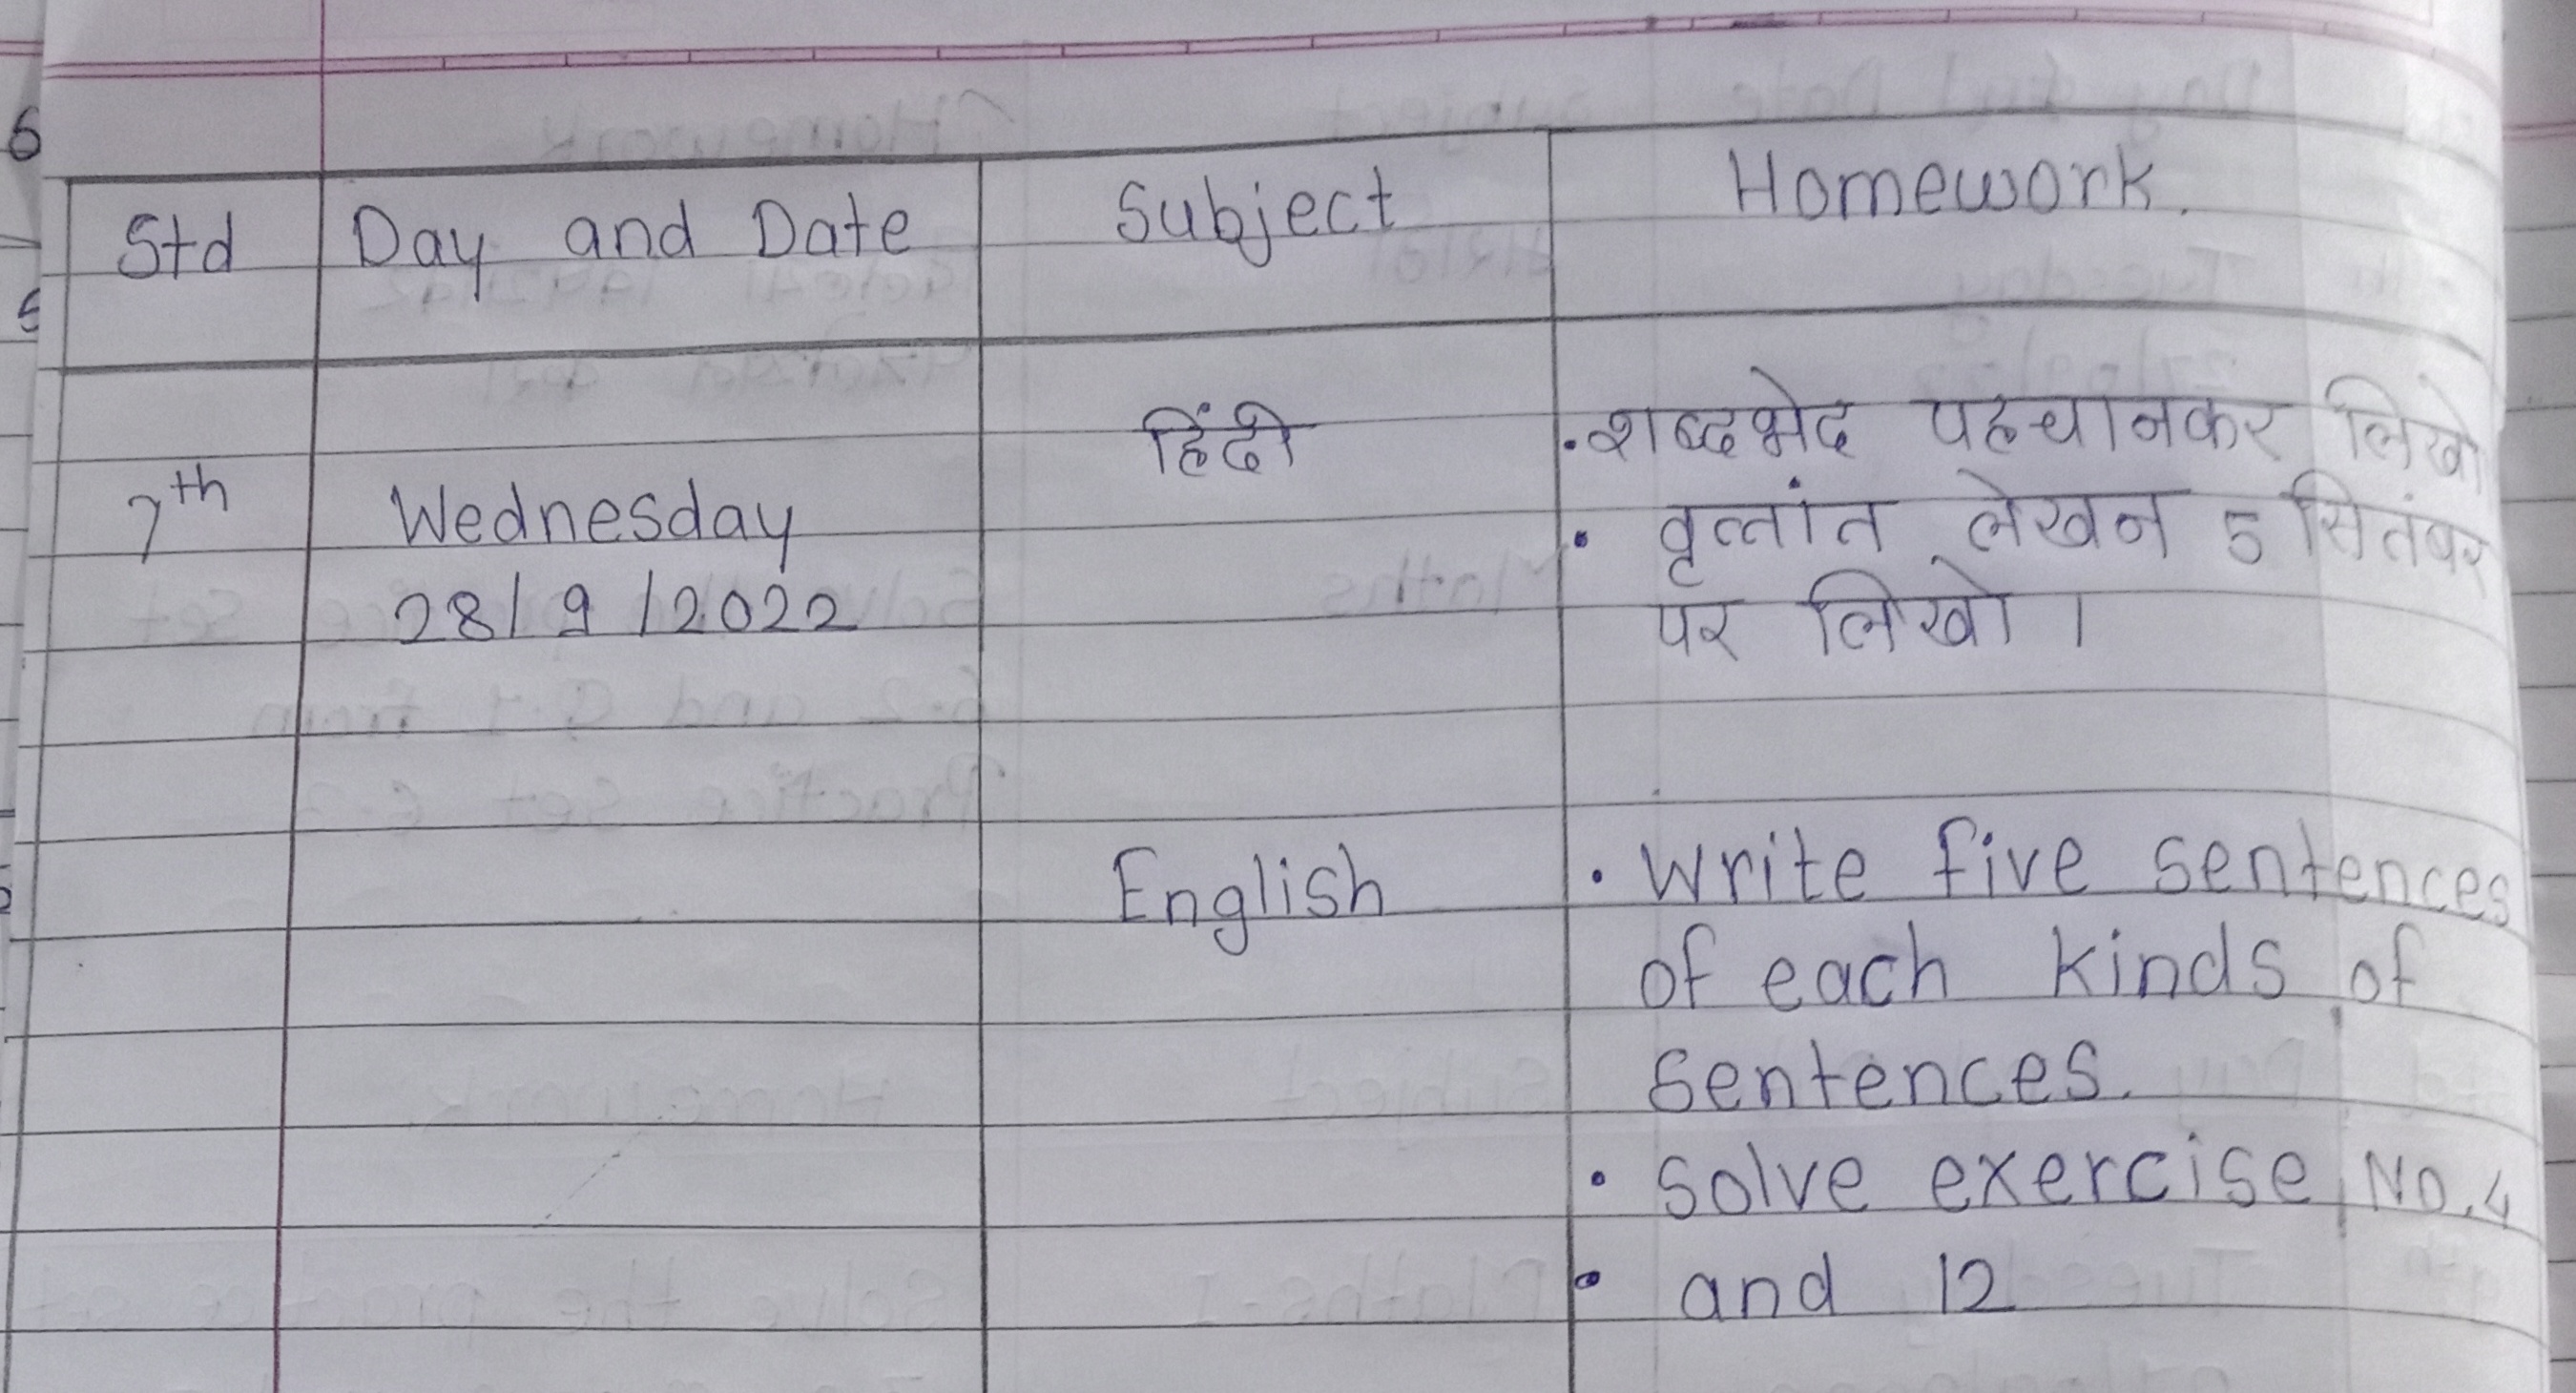 Std Day and Date Subject Homework.
हिंदी • शब्दभेद पहचानकर लिखो
7th Wednesday • वृत्तांत लेखन 5 सितंबर
28/9/2022 पर लिखो।
English • Write five sentences
of each kinds of
sentences.
• Solve exercise No.4
• and 12